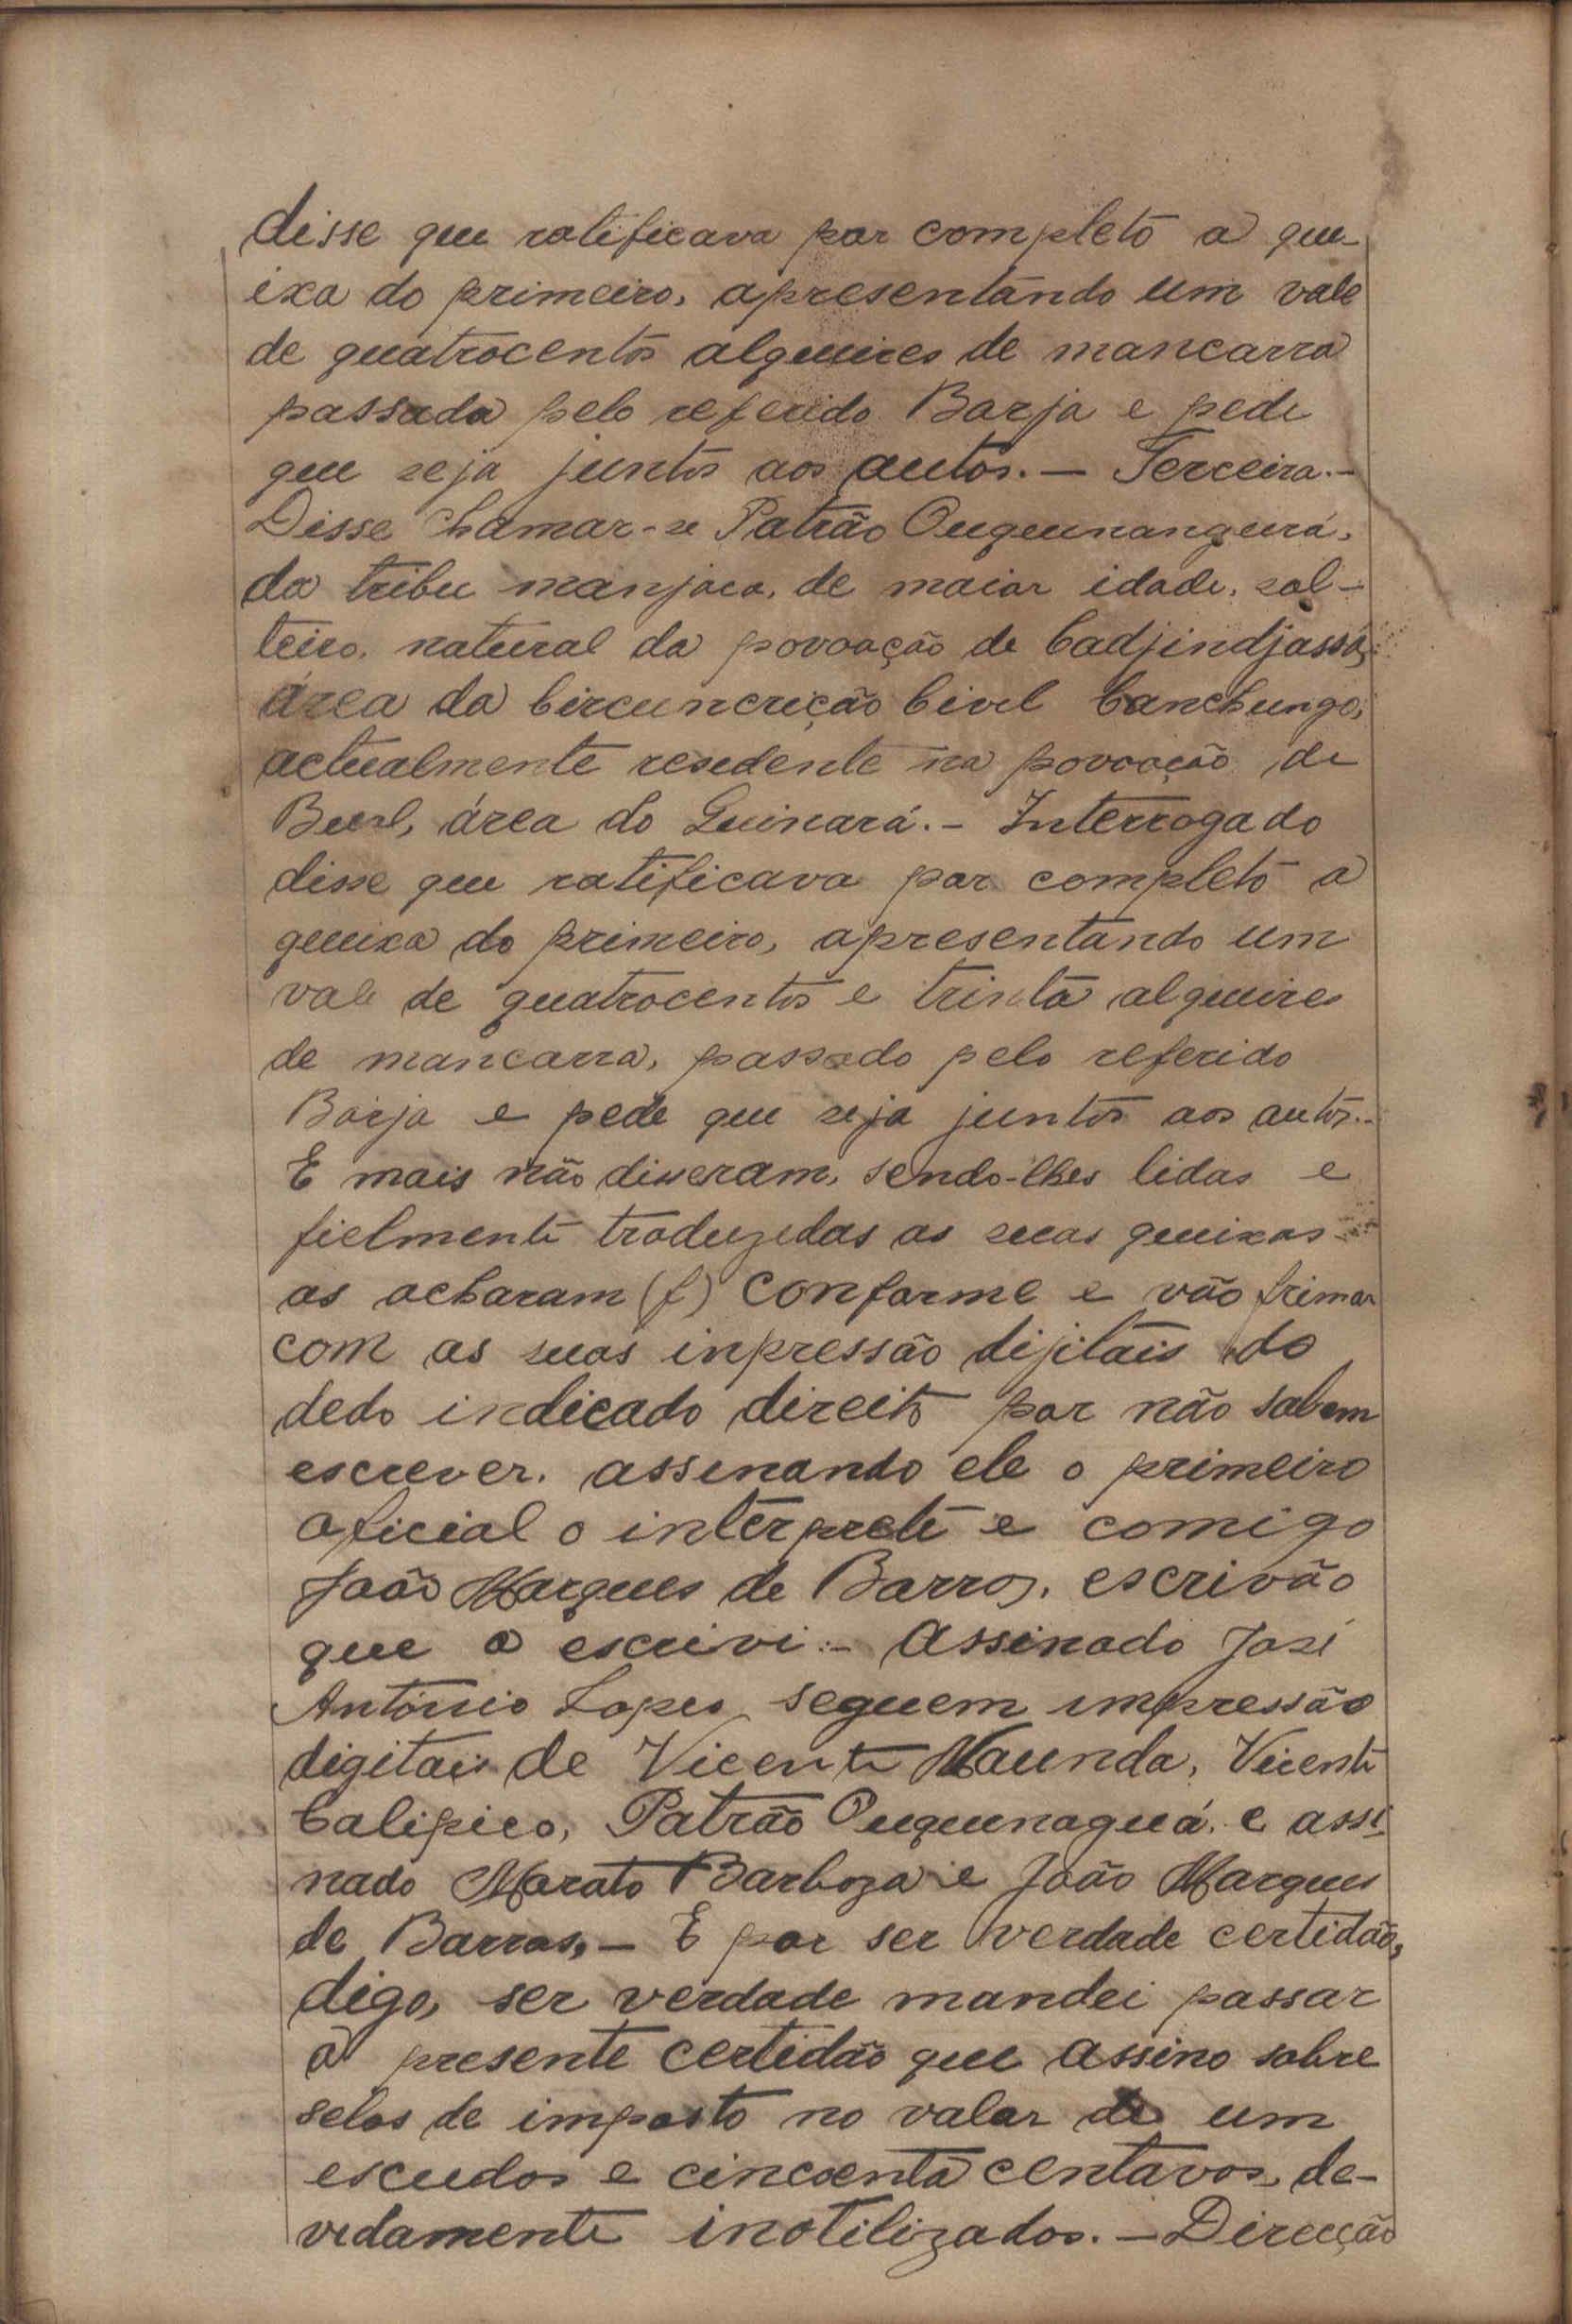 disse que ratificava por completo a que-
ixa do primeiro, apresentando um vale
de quatrocentos alqueires de mancarra
passada pelo referido Barja e pede
que seja juntos aos autos. — Terceira. —
Disse chamar-se Patrão Ouqunangurá,
da tribu manjaca, de maior idade, sol-
teiro, natural da povoação de Cadjindjassá,
área da Circuncrição Civil Canchungo,
actualmente resedente na povoação de
Buul, área do Quinará. - Interrogado
disse que ratificava por completo a
queixa do primeiro, apresentando um
vale de quatrocentos e trinta alqueires
de mancarra, passado pelo referido
Barja e pede que seja juntos aos autos. -
E mais não disseram, sendo-lhes lidas e
fielmente traduzedas as suas queixas
as acharam (f) conforme e vão frimar
com as suas inpressão dijitais do
dedo indicado direito por não sabem
escrever, assinando ele o primeiro
oficial o interprete e comigo
João Marques de Barros, escrivão
que o escrivi. - Assinado José
António Lopes, seguem impressão
digitais de Vicente Maunda, Vicente
Calipico, Patrão Ouqunaguá, e assi-
nado Morato Barboza e João Marques
de Barros, — E por ser verdade certidão,
digo, ser verdade mandei passar
a presente certidão que assino sobre
selos de imposto no valor de um
escudos e cincoenta centavos, de-
vidamente inotilizados. — Direcção